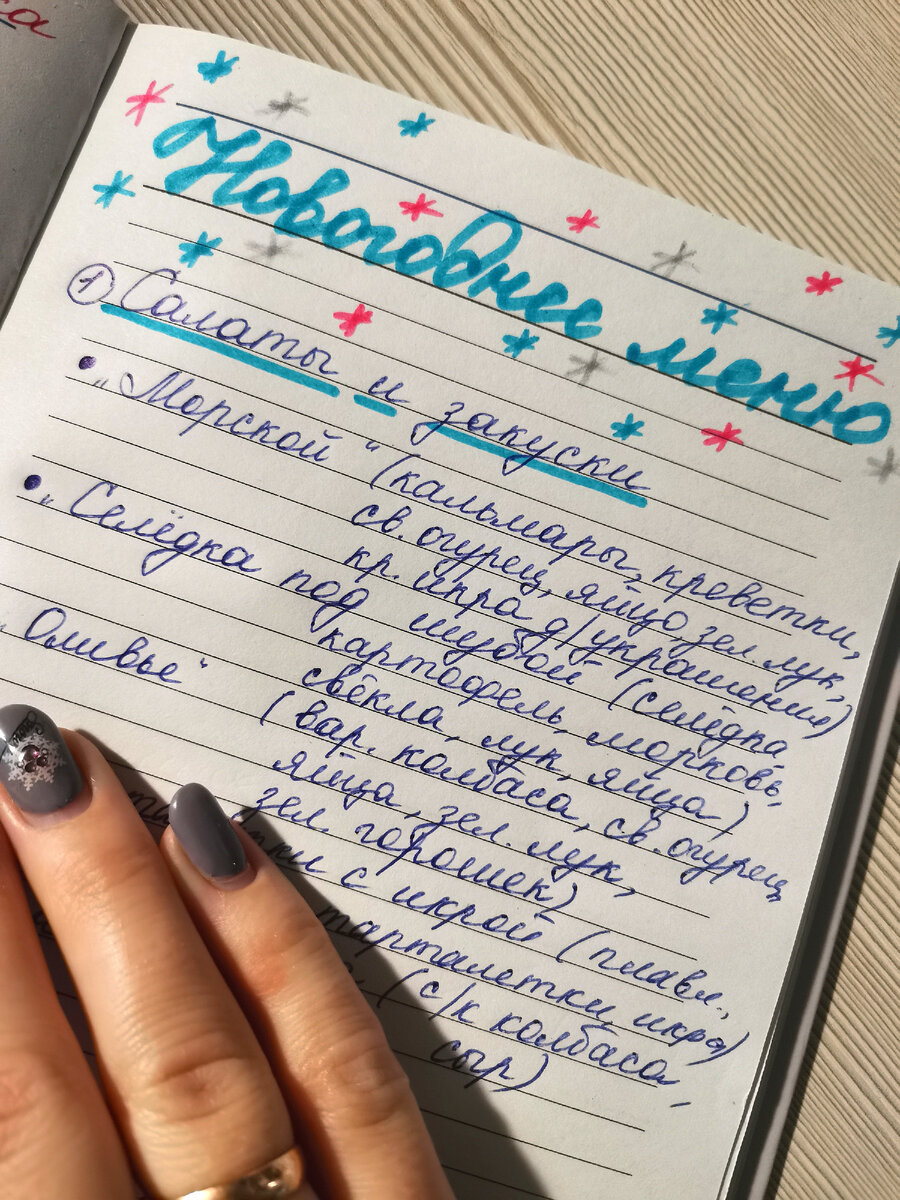 са
Новогоднее меню
① Салаты и закуски
• „Морской“ (кальмары, креветки,
св. огурец, яйцо, зел. лук,
кр. икра д/украшения)
• „Селёдка под шубой (селёдка
картофель, морковь,
свёкла, лук, яйца)
„Оливье“ (вар. колбаса, св. огурец
яйца, зел. лук,
зел. горошек)
с икрой (плавл.,
тарталетки, икра)
(с/к колбаса,
сыр)